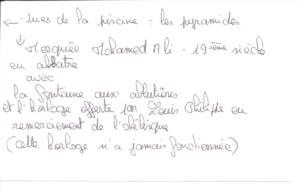 ← Vues de la piscine : les pyramides
↓ Mosquée Mohamed Ali - 19ième siècle
en albâtre
avec
la fontaine aux ablutions
et l'horloge offerte par Louis Philippe en
remerciement de l'obélisque
(cette horloge n'a jamais fonctionnée)